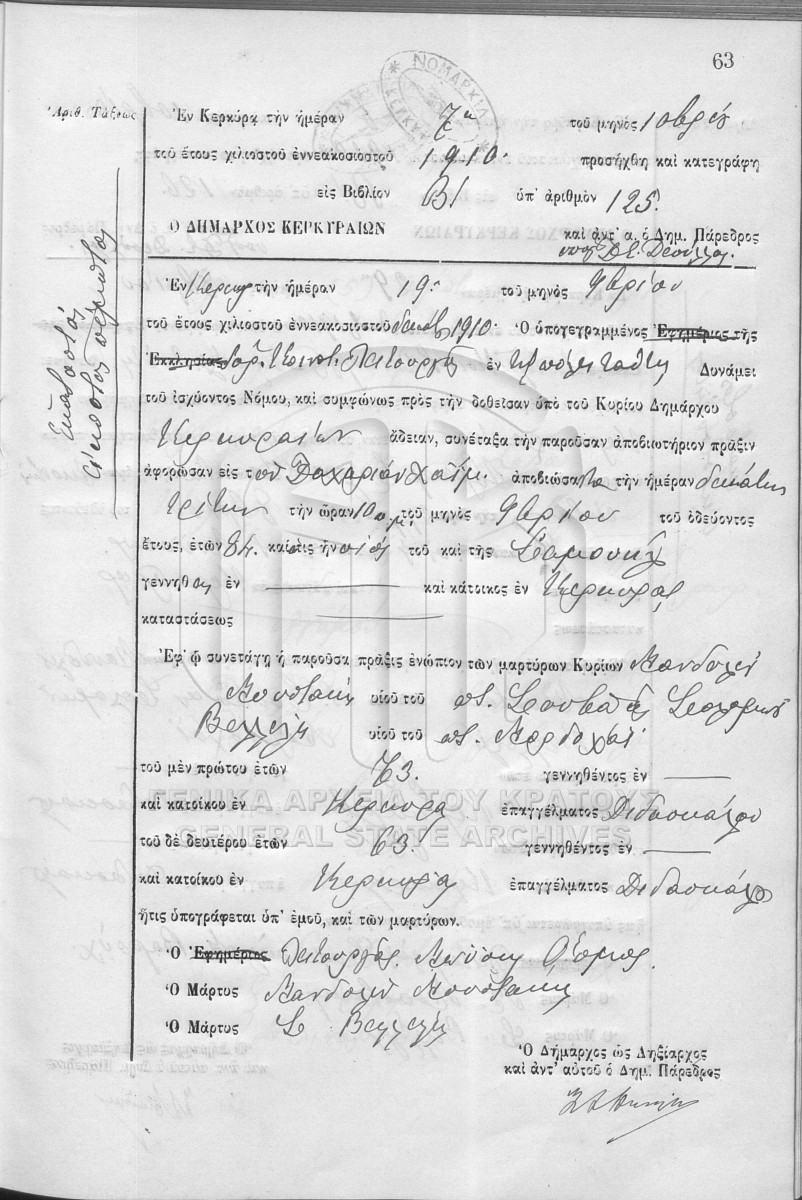 63
Ἀριθ. Τάξεως
Ἑκατοστός
εἰκοστός πέμπτος
Ἐν Κερκύρᾳ τὴν ἡμέραν 7η τοῦ μηνὸς 10βρίου
τοῦ ἔτους χιλιοστοῦ ἐννεακοσιοστοῦ 1910. προσήχθη καὶ κατεγράφη
εἰς Βιβλίον Β/ ὑπ' ἀριθμὸν 125.
Ο ΔΗΜΑΡΧΟΣ ΚΕΡΚΥΡΑΙΩΝ καὶ ἀντ' α. ὁ Δημ. Πάρεδρος
Ἐν Κερκύρᾳ τὴν ἡμέραν 19η τοῦ μηνὸς 9βρίου
τοῦ ἔτους χιλιοστοῦ ἐννεακοσιοστοῦ δεκάτου 1910. Ὁ ὑπογεγραμμένος Ἐφημέριος τῆς
Ἐκκλησίας Λειτουργὸς ἐν τῇ πόλει ταύτῃ Δυνάμει
τοῦ ἰσχύοντος Νόμου, καὶ συμφώνως πρὸς τὴν δοθεῖσαν ὑπὸ τοῦ Κυρίου Δημάρχου
Κερκυραίων ἄδειαν, συνέταξα τὴν παροῦσαν ἀποβιωτήριον πρᾶξιν
ἀφορῶσαν εἰς τὸν Ζαχαρίαν Χαΐμ. ἀποβιώσαντα τὴν ἡμέραν δεκάτην
τρίτην τὴν ὥραν 10 π.μ. τοῦ μηνὸς 9βρίου τοῦ ὁδεύοντος
ἔτους, ἐτῶν 84. καὶ τις ἦν υἱὸς τοῦ καὶ τῆς Σαμουὴλ
γεννηθεὶς ἐν καὶ κάτοικος ἐν Κερκύρᾳ
καταστάσεως
Ἐφ' ᾧ συνετάγη ἡ παροῦσα πρᾶξις ἐνώπιον τῶν μαρτύρων Κυρίων Μανδολὶν
Μουστάκη υἱοῦ τοῦ ποτ. Σαββατῆ Σολομὼν
Βελλέλη υἱοῦ τοῦ ποτ. Μαρδοχάϊ
τοῦ μὲν πρώτου ἐτῶν 73. γεννηθέντος ἐν
καὶ κατοίκου ἐν Κερκύρᾳ ἐπαγγέλματος Διδασκάλου
τοῦ δὲ δευτέρου ἐτῶν 63. γεννηθέντος ἐν
καὶ κατοίκου ἐν Κερκύρᾳ ἐπαγγέλματος Διδασκάλου
ἥτις ὑπογράφεται ὑπ' ἐμοῦ, καὶ τῶν μαρτύρων.
Ὁ Ἐφημέριος Λειτουργὸς
Ὁ Μάρτυς Μανδολὶν Μουστάκη
Ὁ Μάρτυς Σ. Βελλέλη
Ὁ Δήμαρχος ὡς Ληξίαρχος
καὶ ἀντ' αὐτοῦ ὁ Δημ. Πάρεδρος
ΓΕΝΙΚΑ ΑΡΧΕΙΑ ΤΟΥ ΚΡΑΤΟΥΣ
GENERAL STATE ARCHIVES